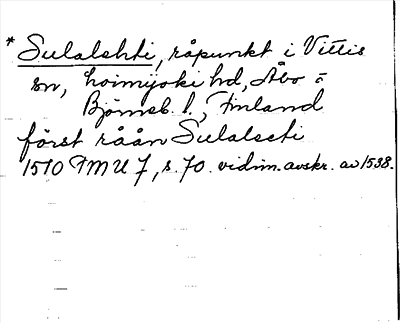 * Sulalehti, råpunkt i Vittis
sn, Loimijoki hd, Åbo o
Björneb. l., Finland
först råån Sulalecti
1510 FMU 7, s. 70. vidim. avskr. av 1538.